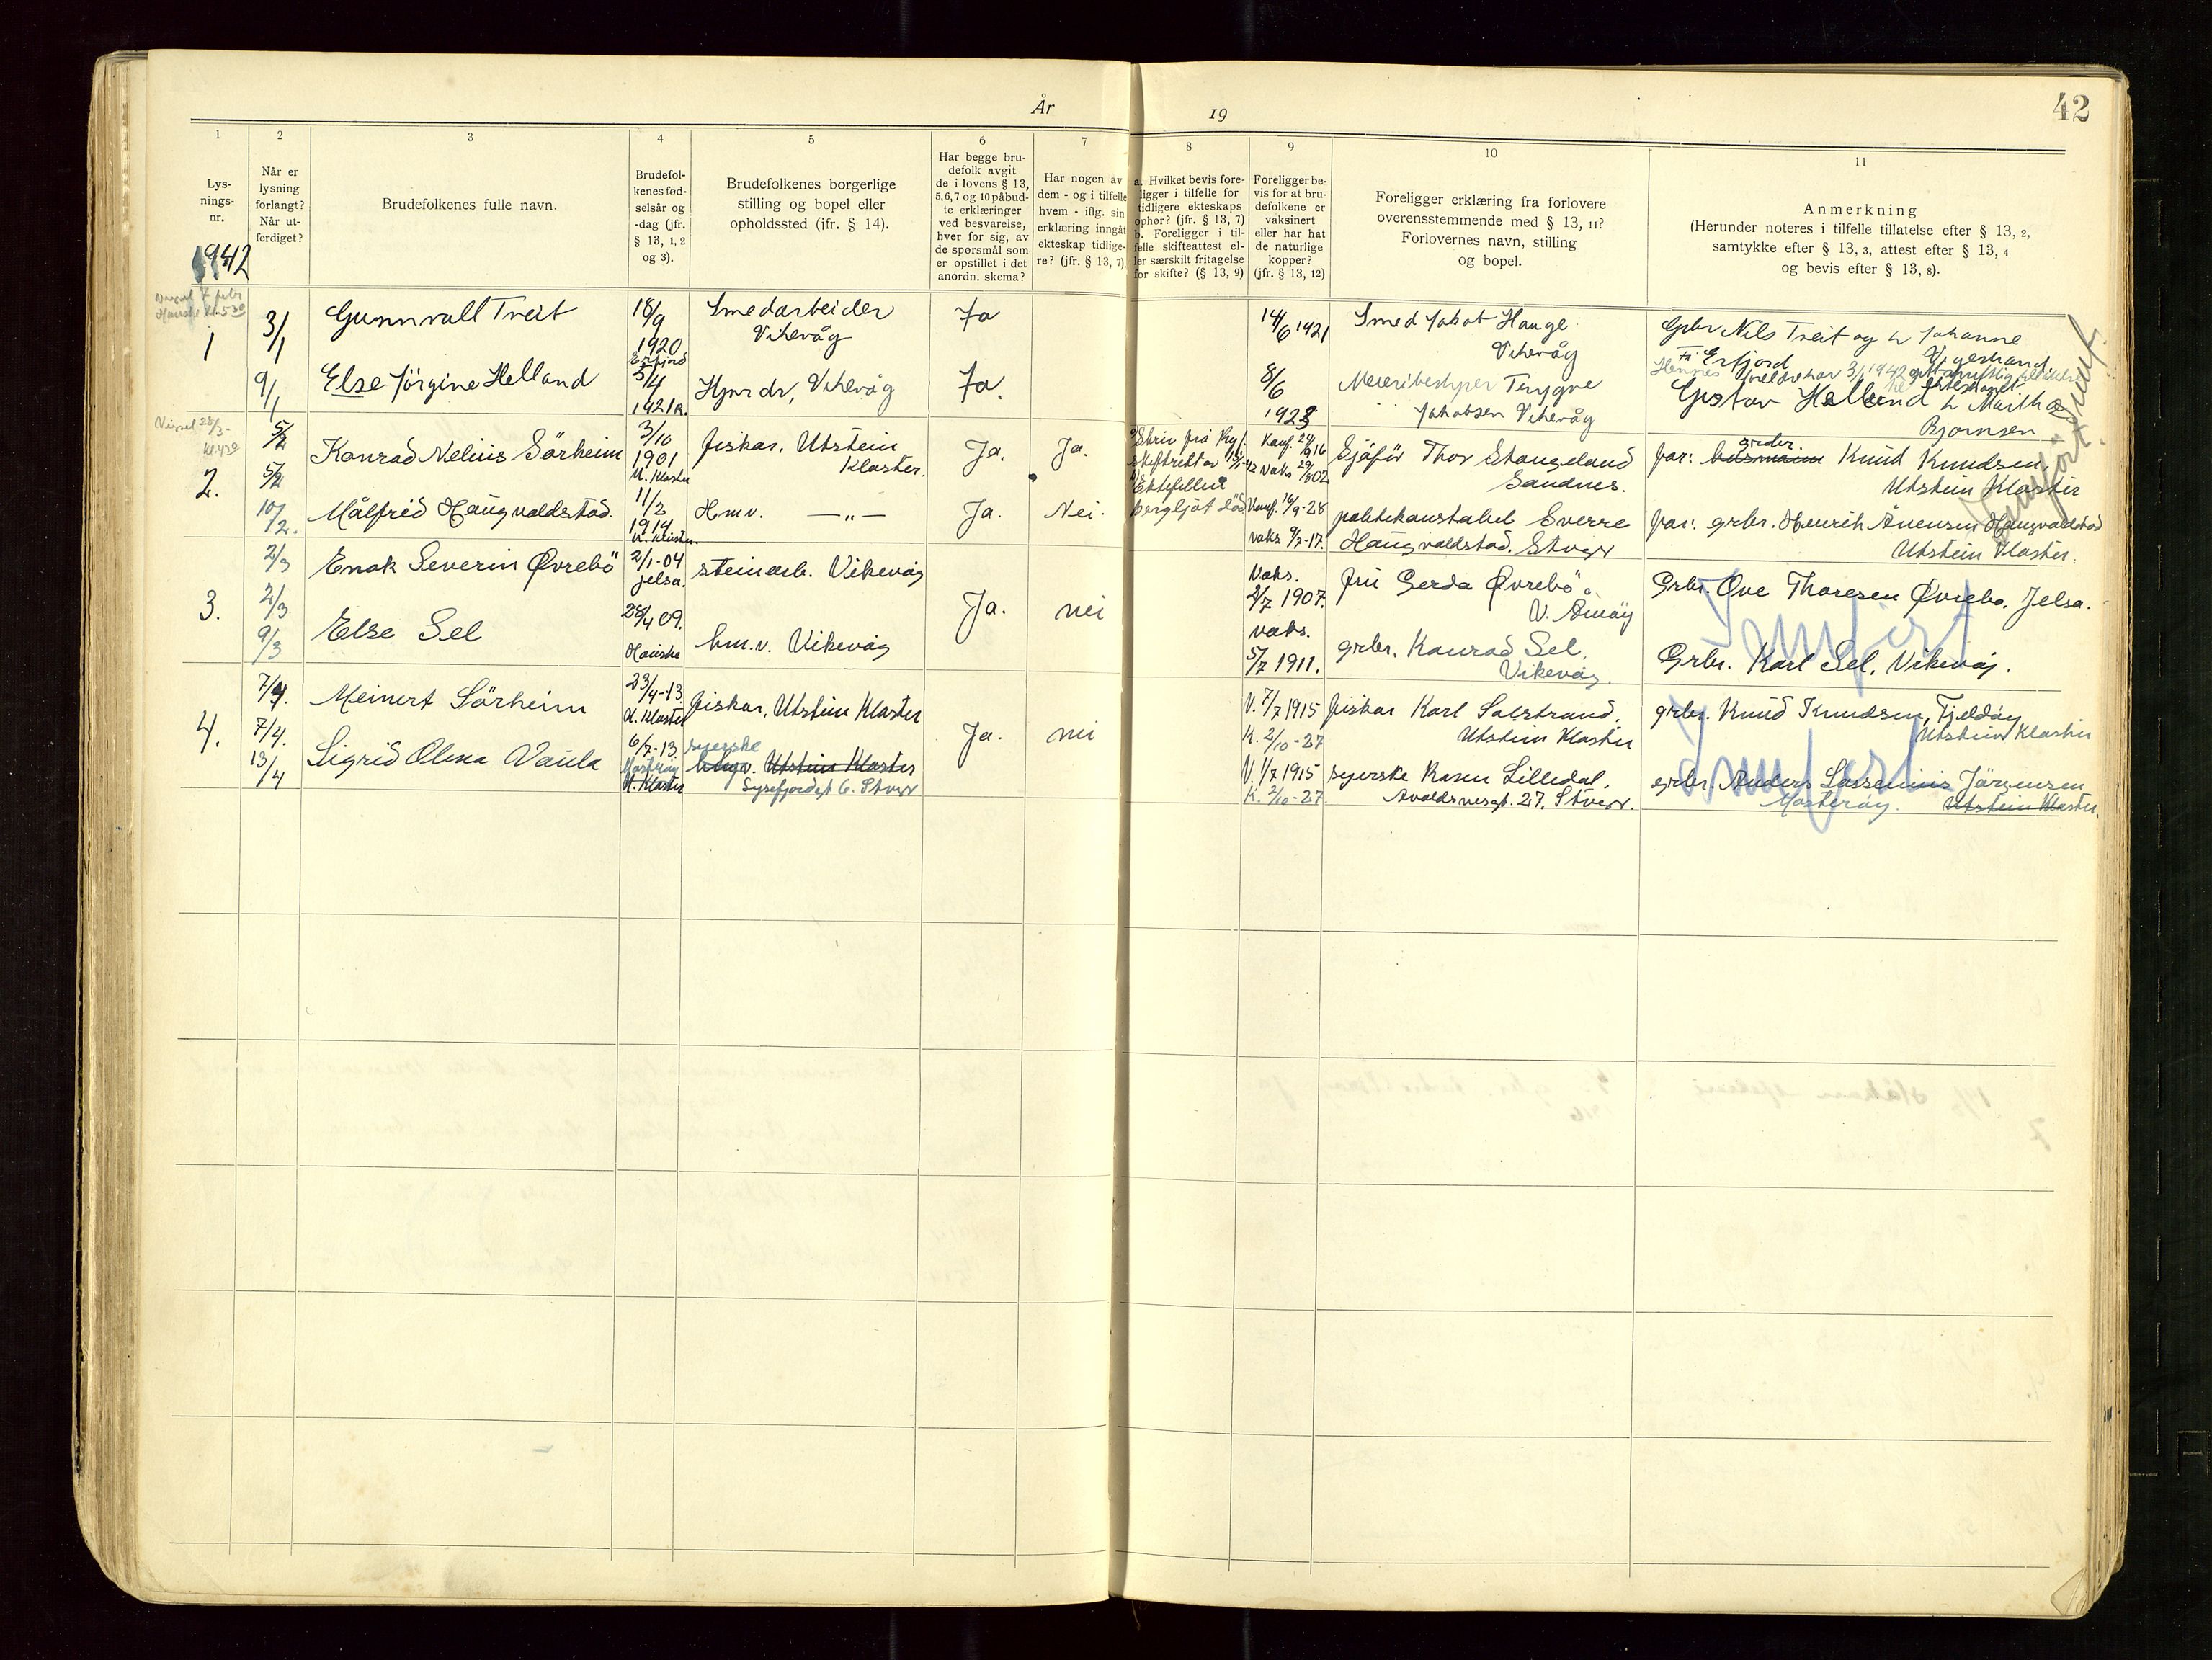 År 19
42
1 2 3 4 5 6 7 8 9 10 11
Lys-
nings-
nr.
Når er
lysning
forlangt?
Når ut-
ferdiget?
Brudefolkenes fulle navn.
Brudefol-
kenes fød-
selsår og
-dag (jfr.
§ 13, 1, 2
og 3).
Brudefolkenes borgerlige
stilling og bopel eller
opholdssted (ifr. § 14).
Har begge bru-
defolk avgit
de i lovens § 13,
5,6,7 og 10 påbud-
te erklæringer
ved besvarelse,
hver for sig, av
de spørsmål som
er opstillet i det
anordn. skema?
Har nogen av
dem - og i tilfelle
hvem - iflg. sin
erklæring inngåt
ekteskap tidlige-
re? (jfr. § 13, 7).
a. Hvilket bevis fore-
ligger i tilfelle for
tidligere ekteskaps
ophør? (jfr. § 13, 7)
b. Foreligger i til-
felle skifteattest el-
ler særskilt fritagelse
for skifte? (§ 13, 9)
Foreligger be-
vis for at bru-
defolkene er
vaksinert
eller har hat
de naturlige
kopper?
(jfr. § 13, 12)
Foreligger erklæring fra forlovere
overensstemmende med § 13, 11?
Forlovernes navn, stilling
og bopel.
Anmerkning
(Herunder noteres i tilfelle tillatelse efter § 13, 2,
samtykke efter § 13, 3, attest efter § 13, 4
og bevis efter § 13, 8).
1942
1
3/1
9/1
Gunnvall Treit
18/9
1920
Erfjord
Smedarbeider
Vikevåg
Ja
14/6 1921
Smed Jakob Hauge
Vikevåg
Gbr Nils Treit og h Johanne
Erfjord
Else Jörgine Helland
5/4
1921 R.
Hjm dr, Vikevåg
Ja.
8/6
1923
Meieribestyrer Trygve
Jakobsen Vikevåg
Gustav Helland h Martha
Bjørnsen
2.
5/2
5/2
10/2.
Konrad Nelius Sörheim
3/10
1901
U. Kloster
fiskar, Utstein
Kloster.
Ja.
Ja.
Ektefellen
Bergljot död
Sjåför Thor Stangeland
Sandnes.
far: Knud Knudsen,
Utstein Kloster
Målfrid Haugvaldstad.
11/2
1914
U. Kloster.
Hmv. —„—
Ja.
Nei.
Konf. 16/9-28
vaks 9/7-17.
politikonstabel Sverre
Haugvaldstad. Stvgr
far: grbr. Henrik Ånensen Haugvaldstad
Utstein Kloster.
3.
2/3
2/3
9/3
Enok Severin Øvrebö
2/1-04
Jelsa.
steinarb. Vikevåg
Ja.
nei
Vaks.
2/7 1907.
fru Gerda Øvrebö
V. Åmöy
Grbr. Ove Thoresen Øvrebö, Jelsa.
Else Sel
28/4 09.
Hauske
hm.v. Vikevåg
vaks.
5/7 1911.
grbr. Konrad Sel,
Vikevåg.
Grbr. Karl Sel, Vikevåg.
4.
7/4.
7/4.
13/4
Meinert Sörheim
23/4-13
U. Kloster
fiskar, Utstein Kloster
Ja.
nei
V. 7/7 1915
K. 2/10-27
fiskar Karl Salstrand,
Utstein Kloster
grbr. Knud Knudsen, Fjeldöy
Utstein Kloster
Sigrid Olena Vaula
6/7-13
Mosteröy
U. Kloster
syerske
Utstein Kloster
Lysefjordgt 6. Stvgr
V. 1/7 1915
K. 2/10-27
syerske Karen Lilledal,
Avaldsnesgt. 27. Stvgr.
grbr. Anders Lassenius Jörgensen
Mosteröy. Utstein Kloster.